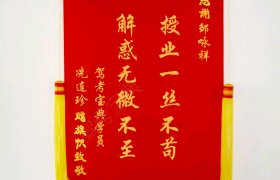 感谢邹咏祥
授业一丝不苟
解惑无微不至
驾考宝典学员
冼连珍 赠旗致敬